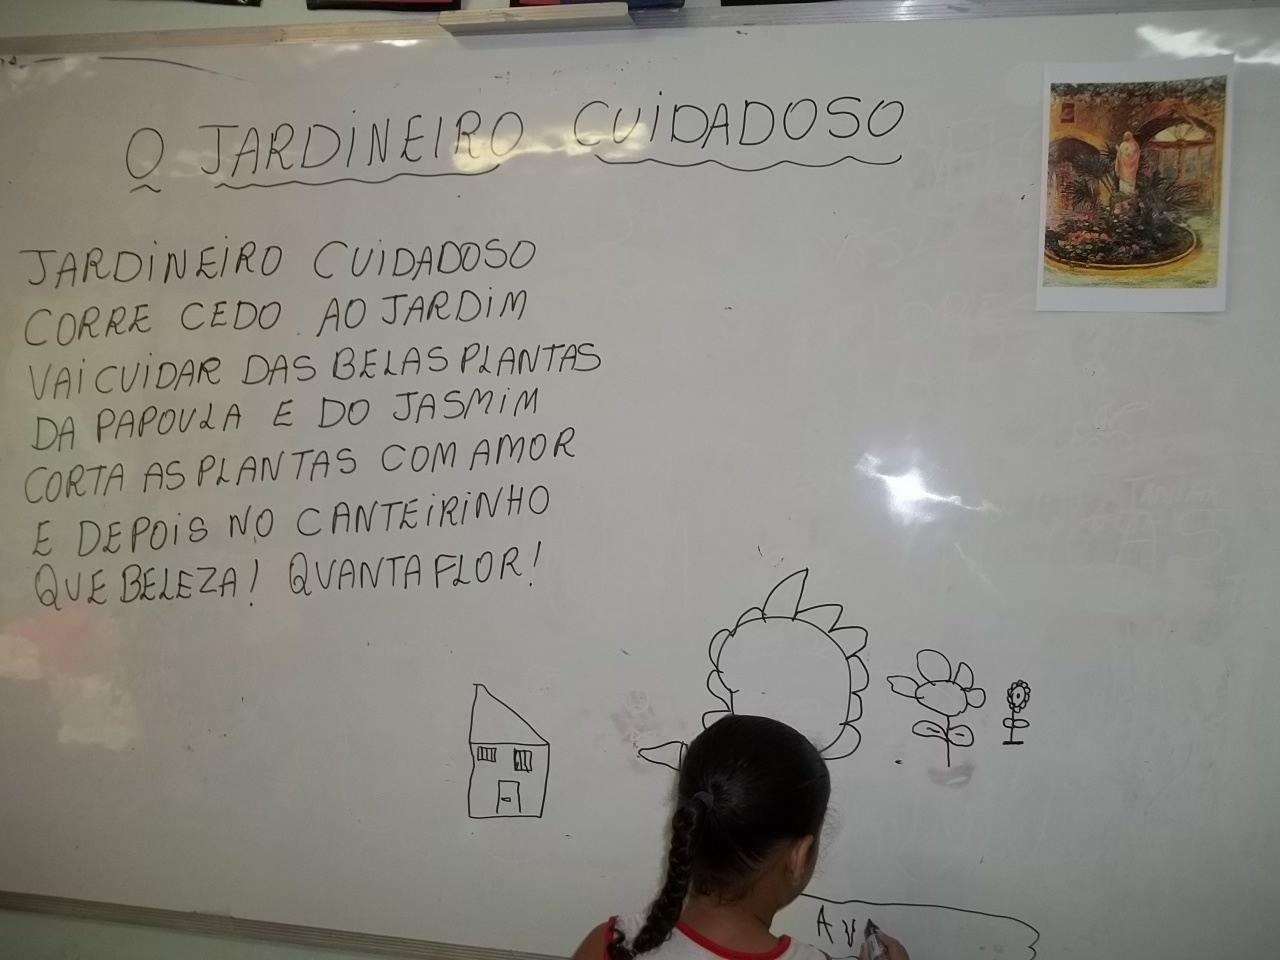 O JARDINEIRO CUIDADOSO
JARDINEIRO CUIDADOSO
CORRE CEDO AO JARDIM
VAI CUIDAR DAS BELAS PLANTAS
DA PAPOULA E DO JASMIM
CORTA AS PLANTAS COM AMOR
E DEPOIS NO CANTEIRINHO
QUE BELEZA! QUANTA FLOR!
AV